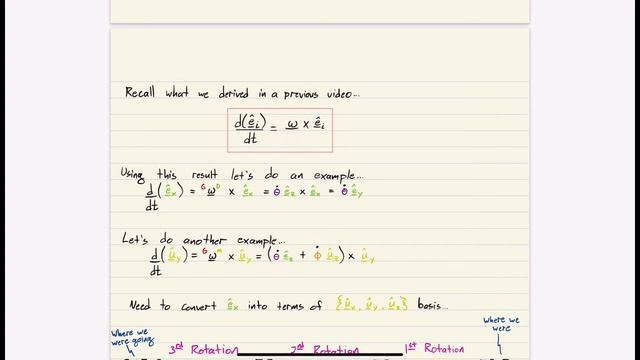 Recall what we derived in a previous video...
d(ê_i)/dt = ω × ê_i
Using this result let's do an example...
d/dt (ê_x) = ᴳω̲ᴰ × ê_x = θ̇ ê_z × ê_x = θ̇ ê_y
Let's do another example...
d/dt (û_y) = ᴳω̲ᵐ × û_y = (θ̇ ê_z + ϕ̇ û_z) × û_y
Need to convert ê_z into terms of {û_x, û_y, û_z} basis...
Where we were going
3rd Rotation 2nd Rotation 1st Rotation
Where we were